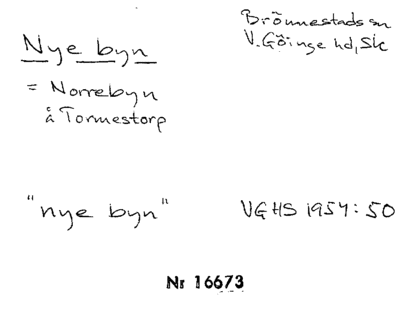 Nye byn
Brönnestads sn
V. Göinge hd, Sk
= Norrebyn
å Tormestorp
"nye byn"
VGHS 1954: 50
Nr 16673